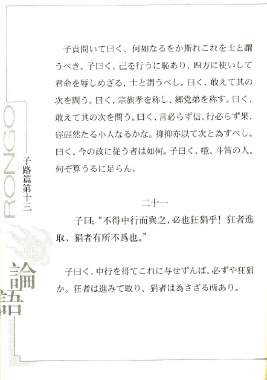 子貢問いて曰く、何如なるをか斯れこれを士と謂
うべき。子曰く、己を行うに恥あり、四方に使いして
君命を辱しめざる、士と謂うべし。曰く、敢えて其の
次を問う。曰く、宗族孝を称し、郷党弟を称す。曰く、
敢えて其の次を問う。曰く、言必らず信、行必らず果、
硜硜然たる小人なるかな。抑抑亦以て次と為すべし。
曰く、今の政に従う者は如何。子曰く、噫、斗筲の人、
何ぞ算うるに足らん。
二十一
子曰："不得中行而與之，必也狂狷乎！狂者進
取，狷者有所不爲也。"
子曰く、中行を得てこれに与せずんば、必ずや狂狷
か。狂者は進みて取り、狷者は為さざる所あり。
RONGO
子路篇第十三
論
語